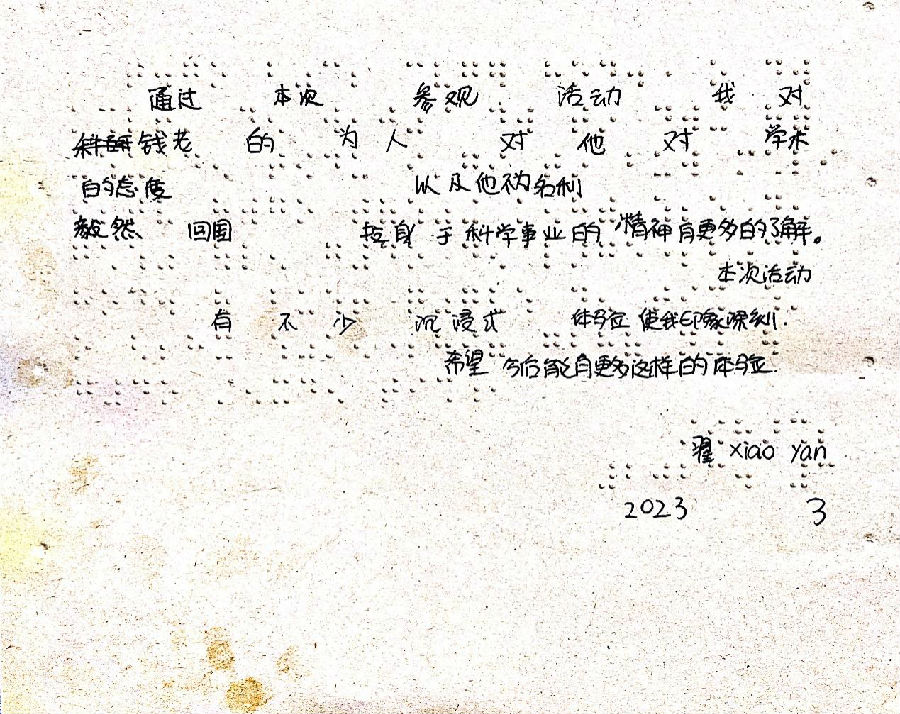 通过 本次 参观 活动 我 对
钱老 的 为 人 对 他 对 学术
的态度 以及他为名利
毅然 回国 投身 于 科学事业的 精神有更多的了解。
本次活动
有 不 少 沉浸式 体验 使我印象深刻.
希望 今后能有更多这样的体验.
翟 xiao yan
2023 3